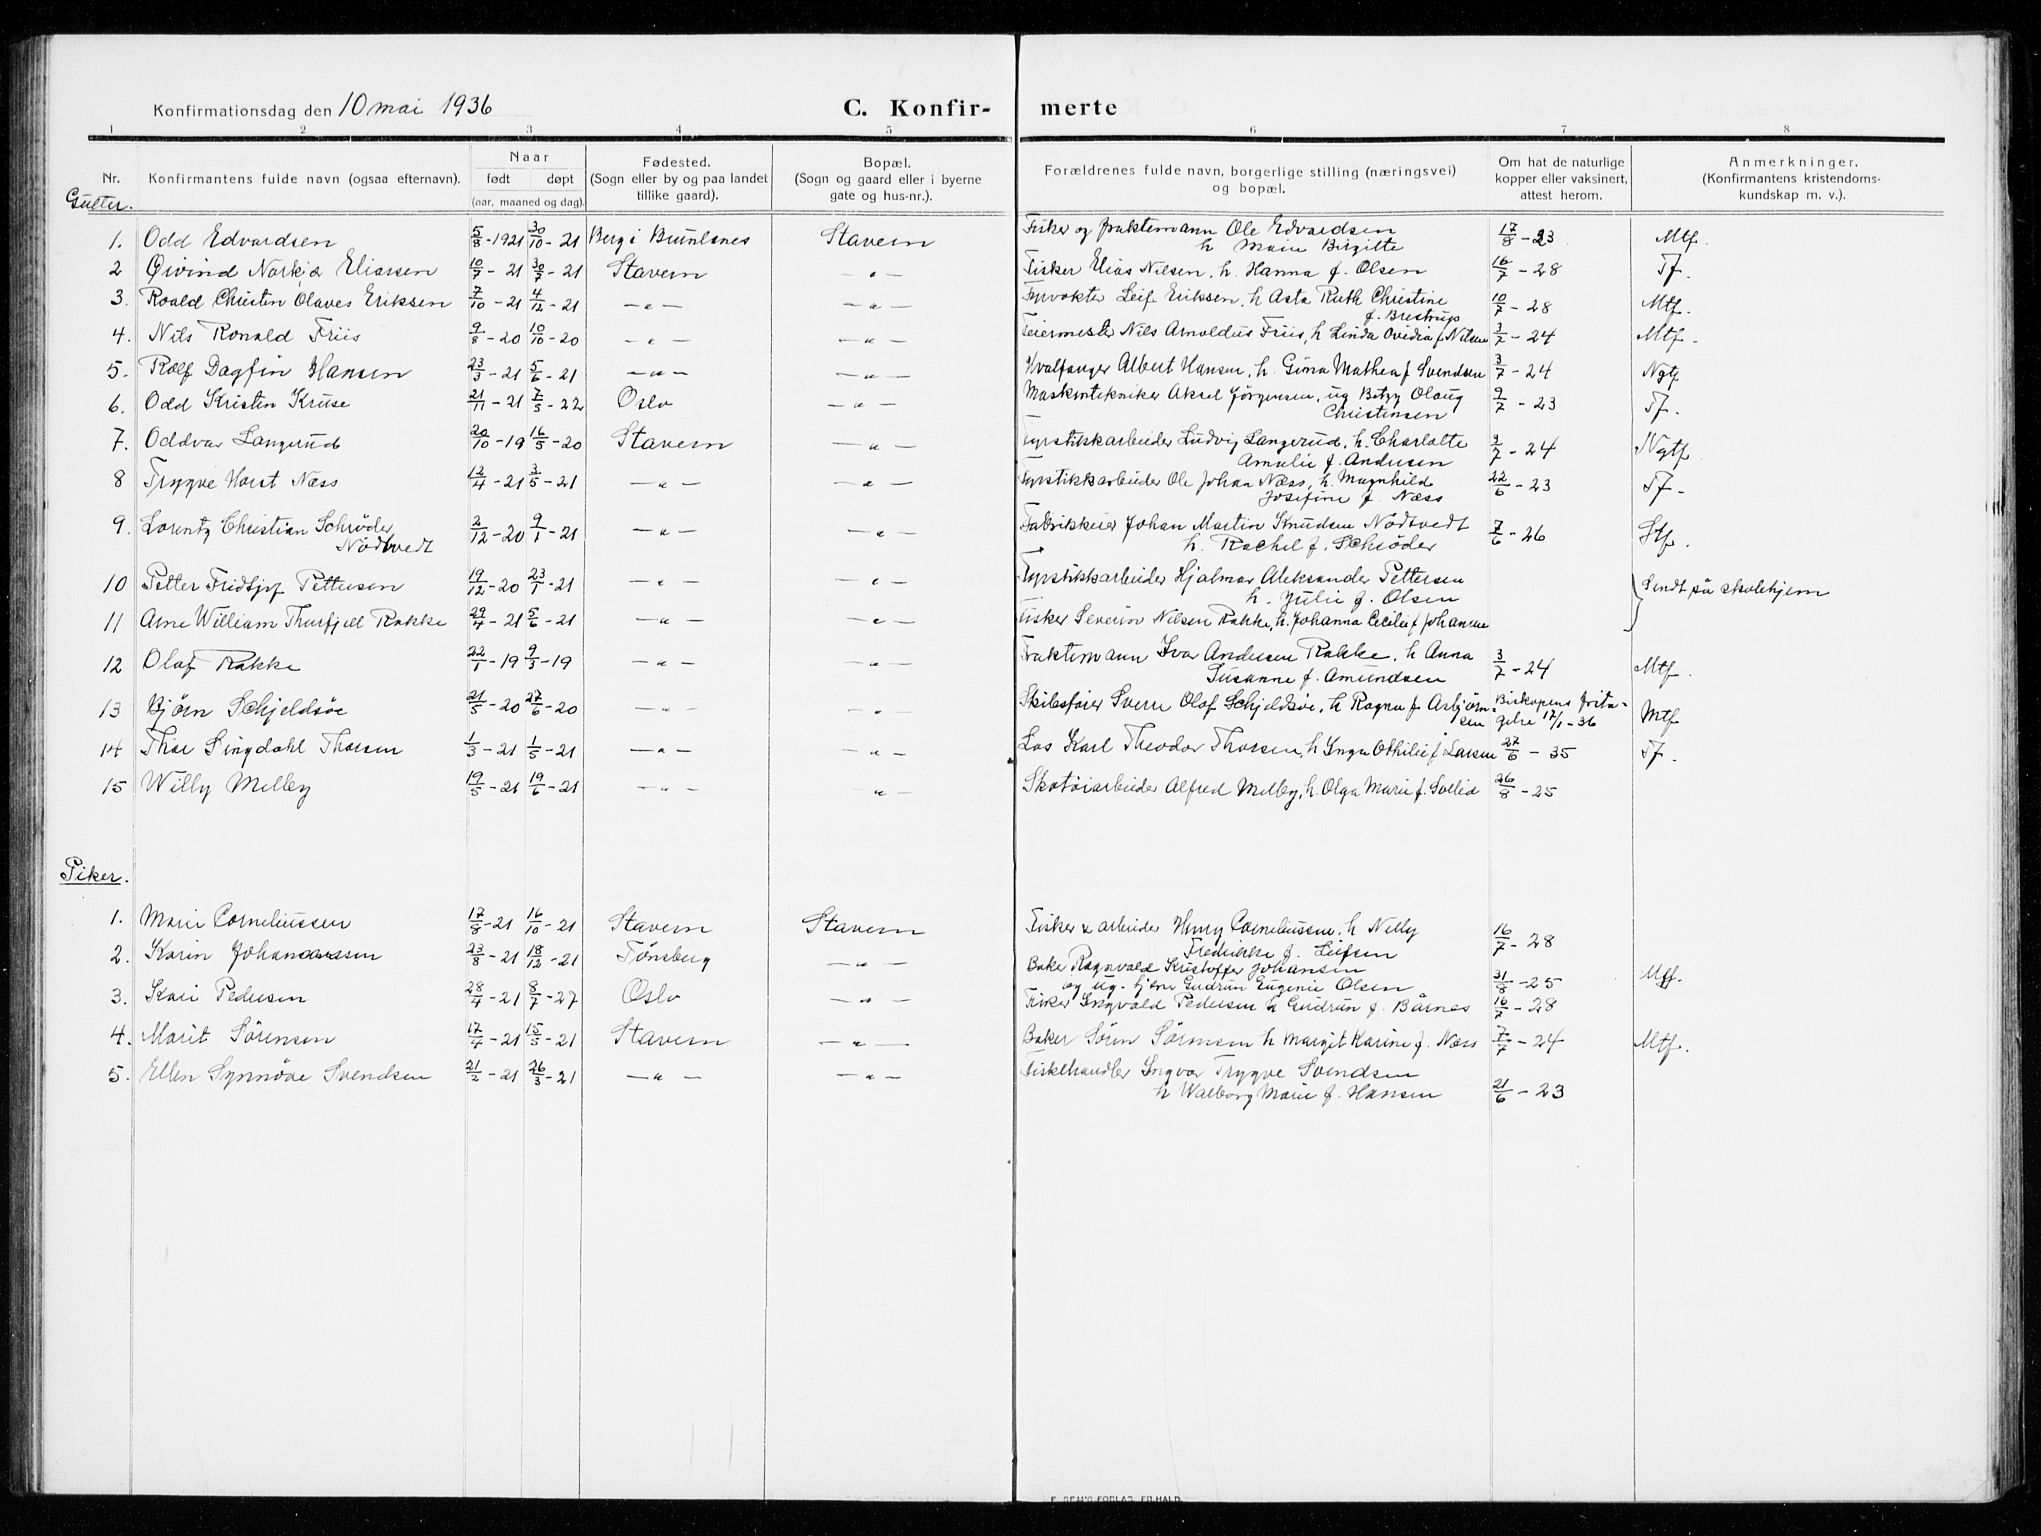 Konfirmationsdag den 10 mai 1936 C. Konfir- merte
1 2 3 4 5 6 7 8
Nr. Konfirmantens fulde navn (ogsaa efternavn). Naar født døpt (aar, maaned og dag). Fødested. (Sogn eller by og paa landet tillike gaard). Bopæl. (Sogn og gaard eller i byerne gate og hus-nr.). Forældrenes fulde navn, borgerlige stilling (næringsvei) og bopæl. Om hat de naturlige kopper eller vaksinert, attest herom. Anmerkninger. (Konfirmantens kristendoms- kundskap m. v.).
Gutter.
1. Odd Edvardsen 5/8-1921 30/10-21 Berg i Brunlanes Stavern Fisker og fraktemann Ole Edvardsen 17/8-23 Mtf.
h. Marie Birgitte
2 Øivind Eliassen 10/7-21 30/7-21 Stavern —"— Fisker Elias Nilsen, h. Hanna f. Olsen 16/7-28 Tf.
3. Roald Christen Olaves Eriksen 7/10-21 4/12-21 —"— —"— Fyrvokter Leif Eriksen, h Asta Ruth Christine 10/7-28 Mtf.
f. Brestrup
4. Nils Ronald Friis 9/8-20 10/10-20 —"— —"— Feiermester Nils Arnoldus Friis, h Linda Ovidia f Nilsen 3/7-24 Mtf.
5. Rolf Dagfin Hansen 23/3-21 5/6-21 —"— —"— Hvalfanger Albert Hansen, h. Gina Mathea f Svendsen 3/7-24 Ngtf
6. Odd Kristen Kruse 21/11-21 7/5-22 Oslo —"— Maskintekniker Aksel Jørgensen, ug Betzy Olaug 9/7-23 Tf.
Christensen
7. Oddvar Langerud 20/10-19 16/5-20 Stavern —"— Fyrstikkarbeider Ludvig Langerud, h. Charlotte 3/7-24 Ngtf
Amalie f. Andersen
8 Trygve Horst Næss 12/4-21 3/5-21 —"— —"— Fyrstikkarbeider Ole Johan Næss, h. Magnhild 22/6-23 Tf-
Josefine f. Næss
9. Lorentz Christian Schrøder 2/12-20 9/1-21 —"— —"— Fabrikkeier Johan Martin Knudsen Nødtvedt 7/6-26 Stf.
Nødtvedt h. Rachel f. Schrøder
10 Petter Fridtjof Pettersen 19/12-20 23/1-21 —"— —"— Fyrstikkarbeider Hjalmar Aleksander Pettersen Sendt på skolehjem
h. Julie f. Olsen
11 Arne William Thorfjell Rakke 29/4-21 5/6-21 —"— —"— Fisker Severin Nilsen Rakke, h. Johanna Cecilie f
12 Olaf Rakke 22/1-19 9/3-19 —"— —"— Fraktemann Ivar Andersen Rakke, h Anna 3/7-24 Mtf.
Susanne f. Amundsen
13 Bjørn Schjeldsøe 21/5-20 27/6-20 —"— —"— Skibsfører Sverre Olaf Schjeldsøe, h Ragna f Asbjørn- Biskopens frita-
sen gelse 17/1-36 Mtf
14 Thor Singdahl Thorsen 1/3-21 1/5-21 —"— —"— Los Karl Theodor Thorsen, h Inga Othilie f Larsen 27/6-35 Tf.
15 Willy Melby 19/5-21 19/6-21 —"— —"— Skotøiarbeider Alfred Melby, h. Olga Marie f. Sollid 26/8-25
Piker.
1. Marie Corneliussen 17/8-21 16/10-21 Stavern Stavern Fisker & arbeider Henry Corneliussen, h Nelly 16/7-28
Fredrikke f. Leifsen
2. Karin Johannessen 23/8-21 18/12-21 Tønsberg —"— Baker Ragnvald Kristoffer Johansen 31/8-25 Mtf.
og ug. Gudrun Eugenie Olsen
3. Kari Pedersen 28/4-21 8/7-27 Oslo —"— Fisker Ingvald Pedersen h Gudrun f. Bårnes 16/7-28
4. Marit Sørensen 17/4-21 15/5-21 Stavern —"— Baker Søren Sørensen h Margit Karine f. Næss 7/7-24 Mtf.
5. Ellen Synnøve Svendsen 21/2-21 26/3-21 —"— —"— Fiskehandler Ingvar Trygve Svendsen
h Walborg Marie f. Hansen 21/6-23